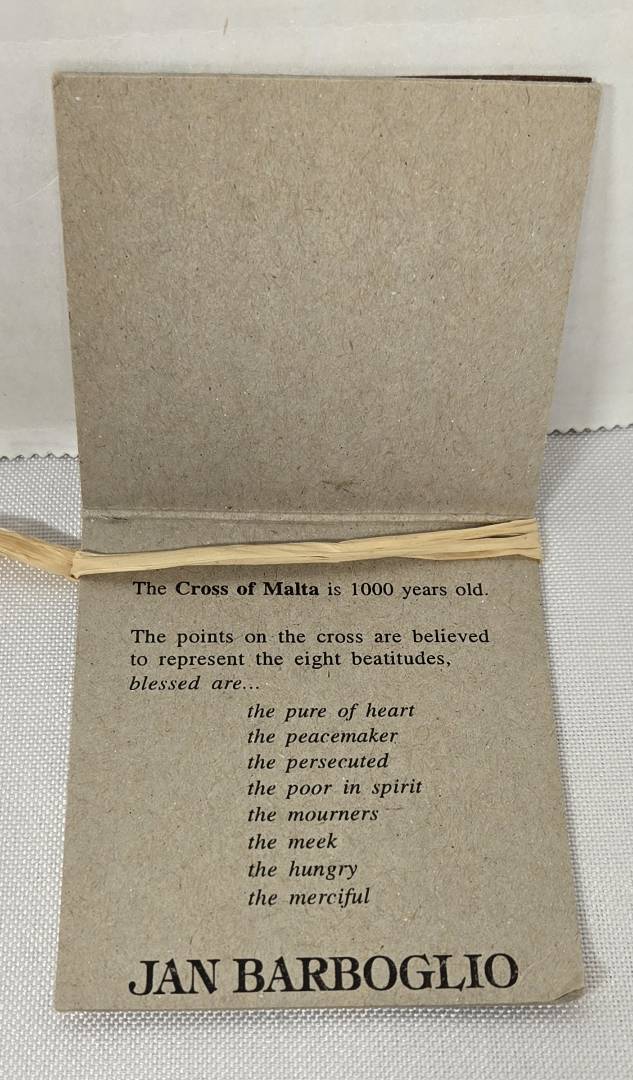 The Cross of Malta is 1000 years old.
The points on the cross are believed
to represent the eight beatitudes,
blessed are...
the pure of heart
the peacemaker
the persecuted
the poor in spirit
the mourners
the meek
the hungry
the merciful
JAN BARBOGLIO